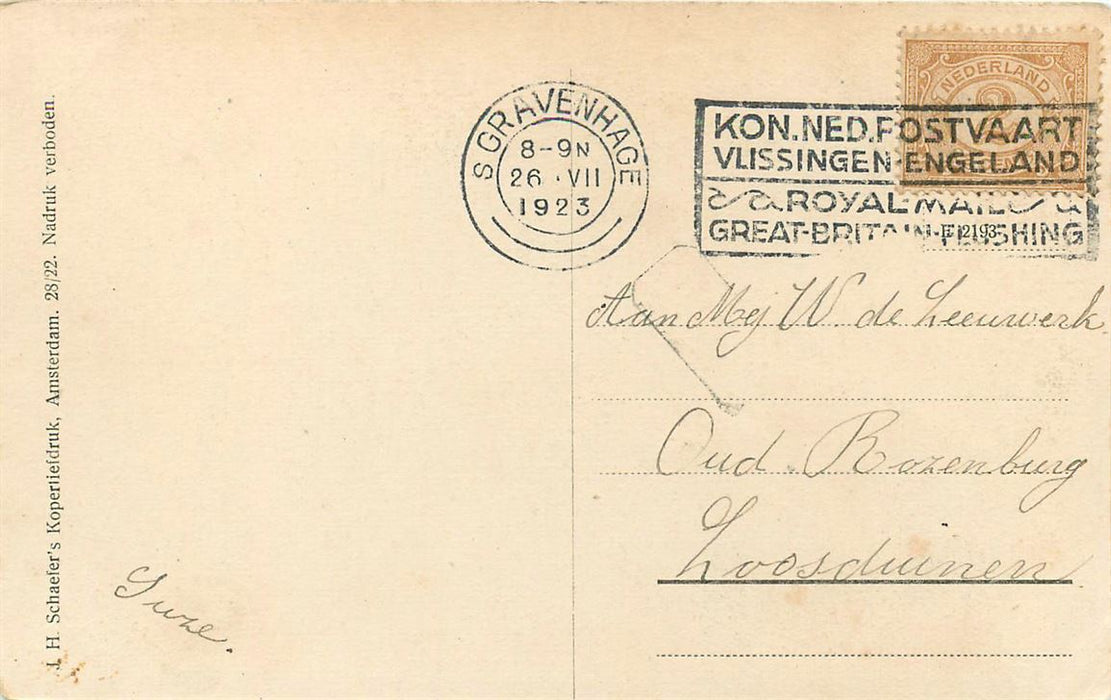 J. H. Schaefer's Kopertiefdruk, Amsterdam. 28/22. Nadruk verboden.
S GRAVENHAGE
8-9N
26 · VII
1923
NEDERLAND
2
KON. NED. POSTVAART
VLISSINGEN-ENGELAND
ROYAL-MAIL
GREAT-BRITAIN-FLUSHING
E 2193
Aan Mej W. de Leeuwerk
Oud Rozenburg
Loosduinen
Suze.